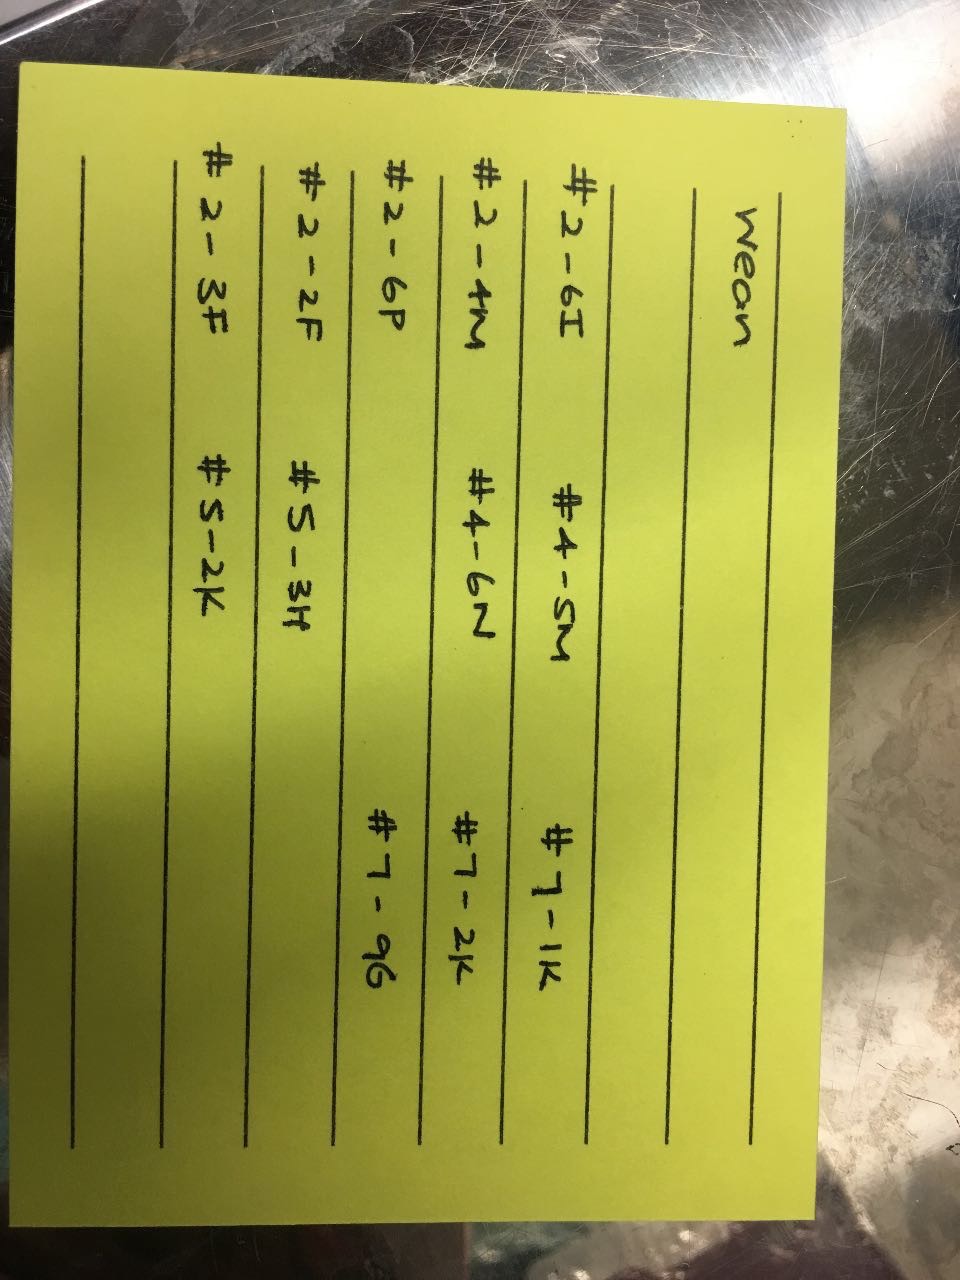 Wean
#2-6I #4-5M #7-1K
#2-4M #4-6N #7-2K
#2-6P #7-9G
#2-2F #5-3H
#2-3F #5-2K